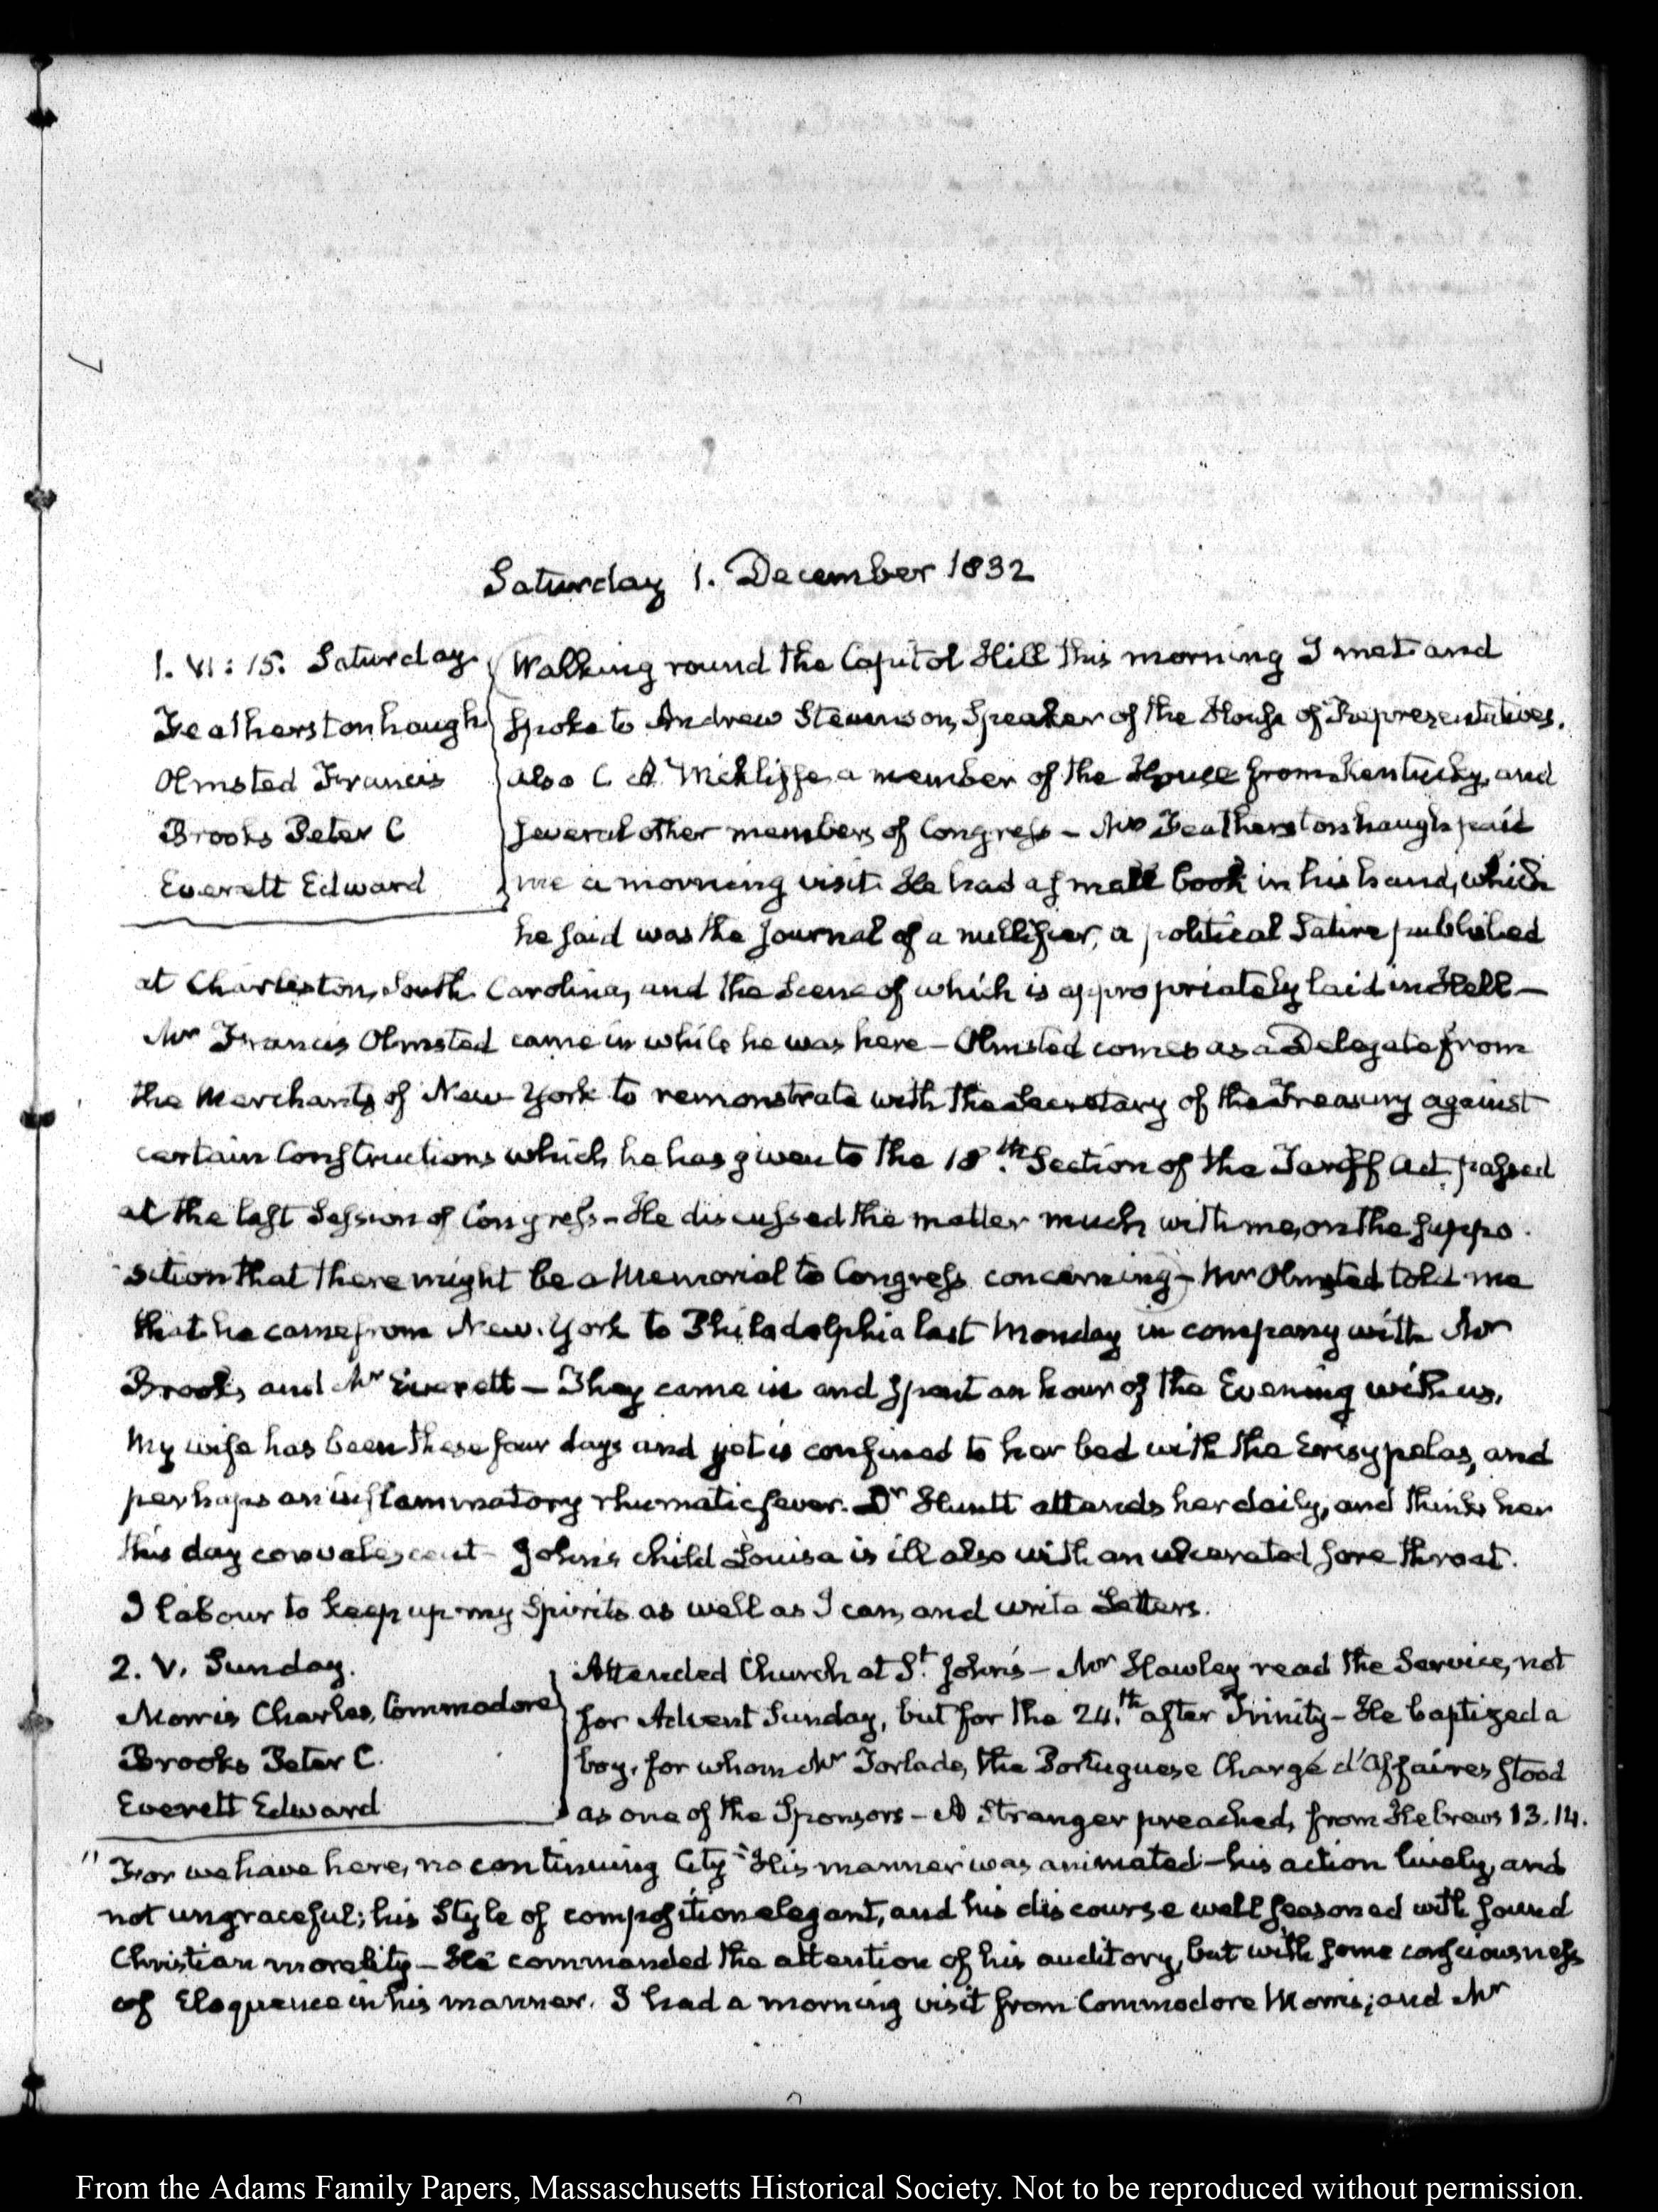 Saturday 1. December 1832
1. VI: 15. Saturday.
Featherstonhaugh
Olmsted Francis
Brooks Peter C
Everett Edward
Walking round the Capitol Hill this morning I met and
spoke to Andrew Stevenson, Speaker of the House of Representatives.
also C. A. Mckliffe a member of the House from Kentucky, and
several other members of Congress – Mr Featherstonhaugh paid
me a morning visit. He had a small book in his hand, which
he said was the Journal of a nullifier, a political Satire published
at Charleston, South Carolina, and the Scene of which is appropriately laid in Hell –
Mr Francis Olmsted came in while he was here – Olmsted comes as a Delegate from
the Merchants of New York to remonstrate with the Secretary of the Treasury against
certain Constructions which he has given to the 18.th Section of the Tariff Act passed
at the last Session of Congress – He discussed the matter much with me, on the suppo-
sition that there might be a Memorial to Congress concerning – Mr Olmsted told me
that he came from New-York to Philadelphia last Monday in company with Mr
Brooks, and Mr Everett – They came in and spent an hour of the Evening with us.
My wife has been these four days and yet is confined to her bed with the Erisypelas, and
perhaps an inflammatory rhumatic fever. Dr Huntt attends her daily, and thinks her
this day convalescent – John's child Louisa is ill also with an ulcerated sore throat.
I labour to keep up my Spirits as well as I can, and write Letters.
2. V. Sunday.
Morris Charles, Commodore
Brooks Peter C.
Everett Edward
Attended Church at St. John's – Mr Hawley read the Service, not
for Advent Sunday, but for the 24.th after Trinity – He baptized a
boy, for whom Mr Torlade, the Portuguese Chargé d'Affaires stood
as one of the Sponsors – A Stranger preached, from Hebrews 13.14.
"For we have here, no continuing City" His manner was animated – his action lively, and
not ungraceful; his Style of composition elegant, and his discourse well seasoned with sound
Christian morality – He commanded the attention of his auditory, but with some consciousness
of Eloquence in his manner. I had a morning visit from Commodore Morris; and Mr
From the Adams Family Papers, Massachusetts Historical Society. Not to be reproduced without permission.